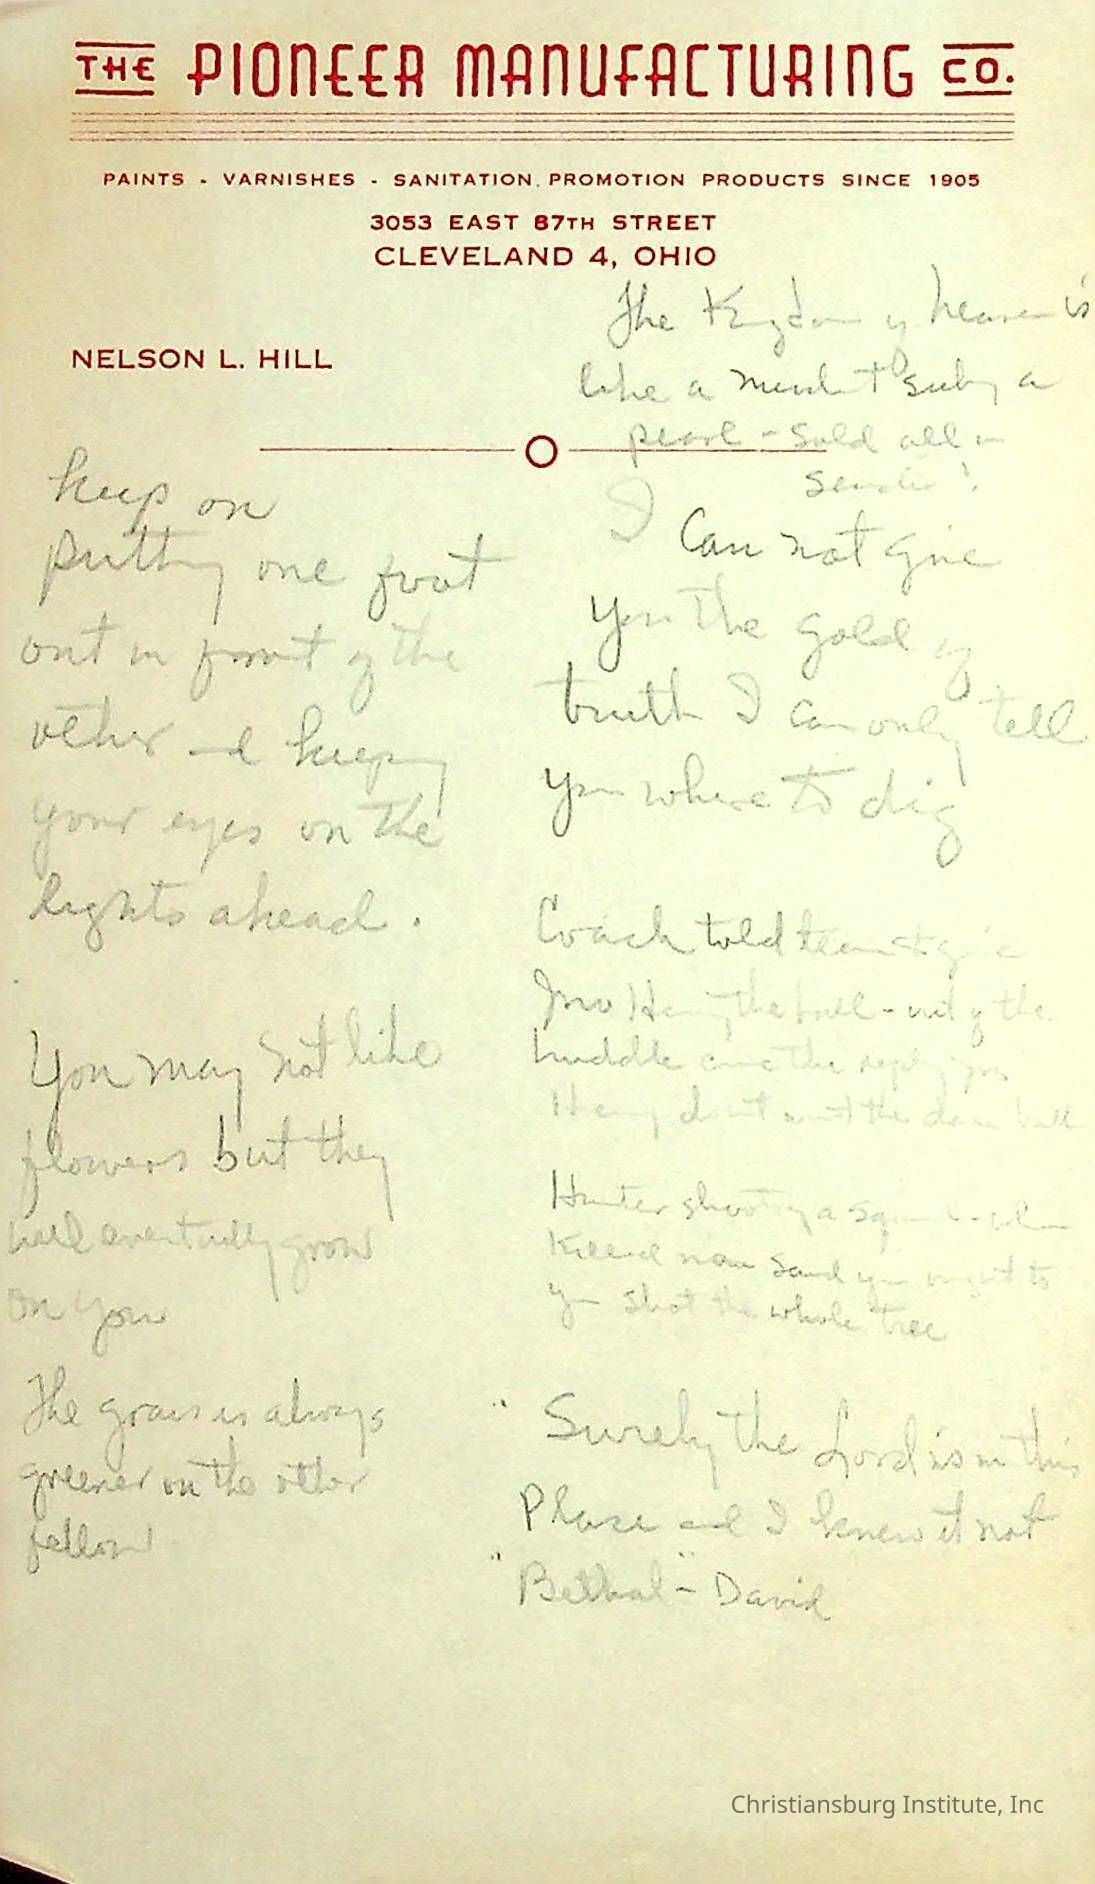 THE PIONEER MANUFACTURING CO.
PAINTS - VARNISHES - SANITATION. PROMOTION PRODUCTS SINCE 1905
3053 EAST 87TH STREET
CLEVELAND 4, OHIO
NELSON L. HILL
keep on
putting one foot
out in front of the
other and keeping
your eyes on the
lights ahead.
You may not like
flowers but they
will eventually grow
on you
The grass is always
greener on the other
fellow
The Kingdom of heaven is
like a a
pearl - Sold all
I Can not give
you the gold of
truth I can only tell
you where to dig
Coach told team to give
Henry the ball - out of the
huddle came the reply
Henry don't want the ball
Hunter shooting a
Killed man said you ought to
you shot the whole tree
" Surely the Lord is in this
Place and I knew it not
"Bethal" - David
Christiansburg Institute, Inc